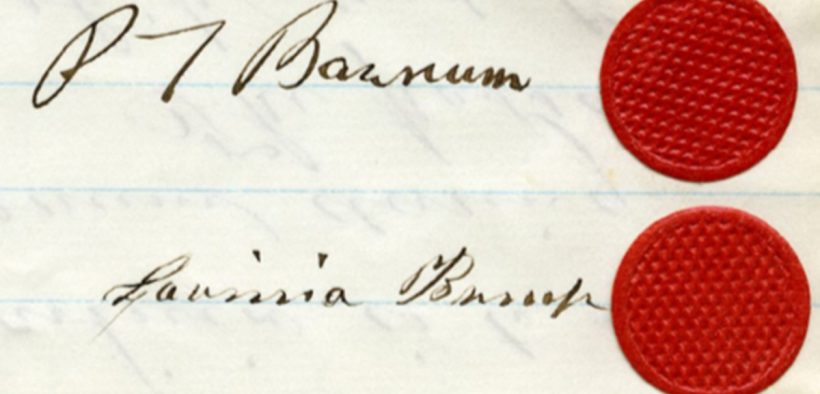 P T Barnum
Lavinia Bump